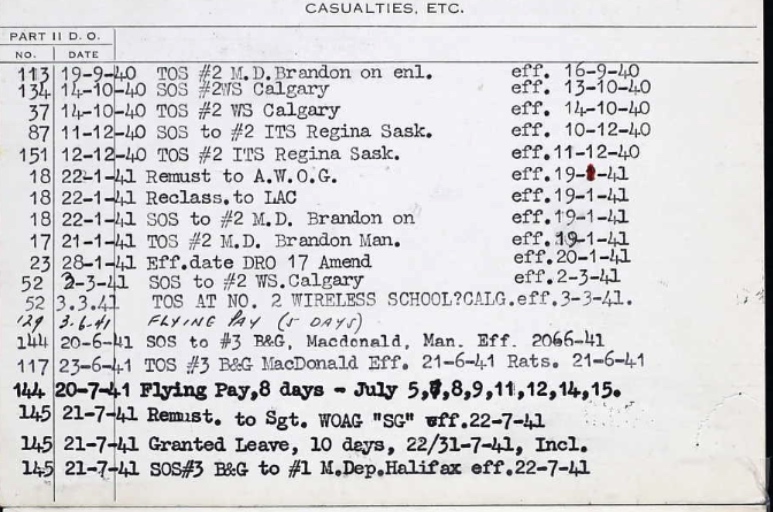 CASUALTIES, ETC.
PART II D. O.
NO. DATE
113 19-9-40 TOS #2 M.D.Brandon on enl. eff. 16-9-40
134 14-10-40 SOS #2WS Calgary eff. 13-10-40
37 14-10-40 TOS #2 WS Calgary eff. 14-10-40
87 11-12-40 SOS to #2 ITS Regina Sask. eff. 10-12-40
151 12-12-40 TOS #2 ITS Regina Sask. eff.11-12-40
18 22-1-41 Remust to A.W.O.G. eff.19-1-41
18 22-1-41 Reclass.to LAC eff.19-1-41
18 22-1-41 SOS to #2 M.D. Brandon on eff.19-1-41
17 21-1-41 TOS #2 M.D. Brandon Man. eff.19-1-41
23 28-1-41 Eff.date DRO 17 Amend eff.20-1-41
52 2-3-41 SOS to #2 WS.Calgary eff.2-3-41
52 3.3.41 TOS AT NO. 2 WIRELESS SCHOOL?CALG.eff.3-3-41.
129 3.6.41 FLYING PAY (5 DAYS)
144 20-6-41 SOS to #3 B&G, Macdonald, Man. Eff. 2066-41
117 23-6-41 TOS #3 B&G MacDonald Eff. 21-6-41 Rats. 21-6-41
144 20-7-41 Flying Pay,8 days - July 5,7,8,9,11,12,14,15.
145 21-7-41 Remust. to Sgt. WOAG "SG" eff.22-7-41
145 21-7-41 Granted Leave, 10 days, 22/31-7-41, Incl.
145 21-7-41 SOS#3 B&G to #1 M.Dep.Halifax eff.22-7-41